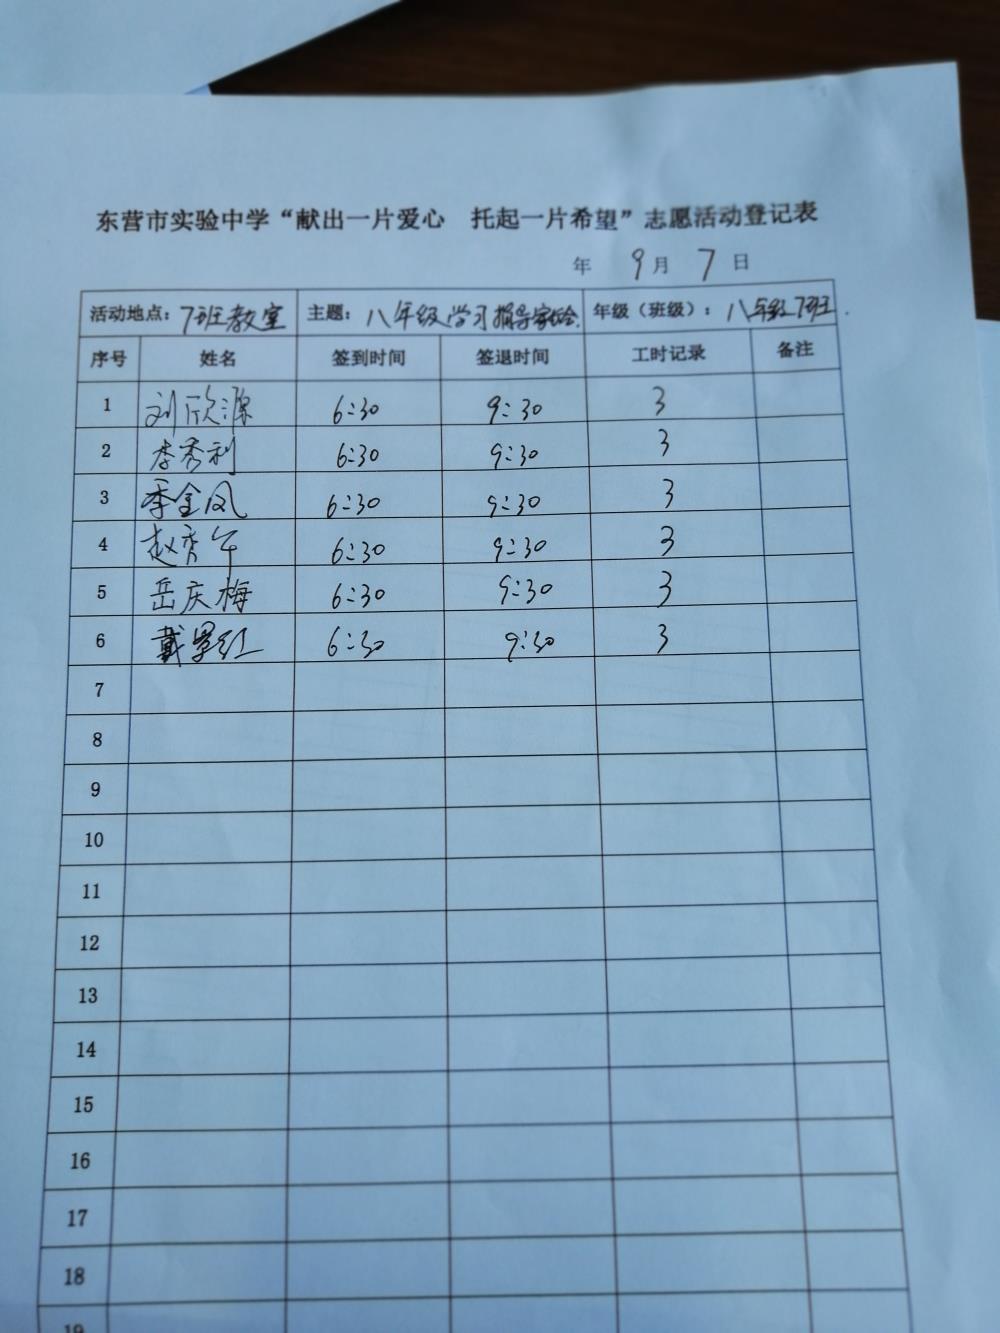 东营市实验中学“献出一片爱心　托起一片希望”志愿活动登记表
年 9月 7日
活动地点：7班教室 主题：八年级学习指导家长会 年级（班级）：八年级7班
序号 姓名 签到时间 签退时间 工时记录 备注
1 刘欣源 6:30 9:30 3
2 李秀利 6:30 9:30 3
3 季金凤 6:30 9:30 3
4 赵秀午 6:30 9:30 3
5 岳庆梅 6:30 9:30 3
6 戴 红 6:30 9:30 3
7
8
9
10
11
12
13
14
15
16
17
18
19